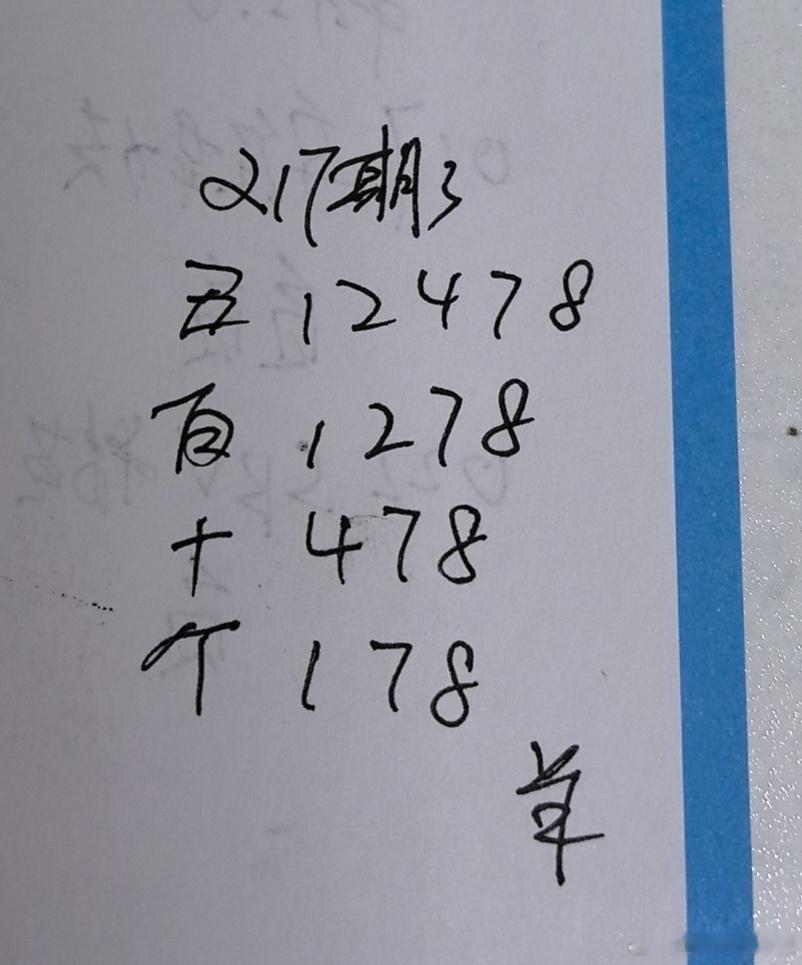 217期3
五12478
百1278
十478
个178
单